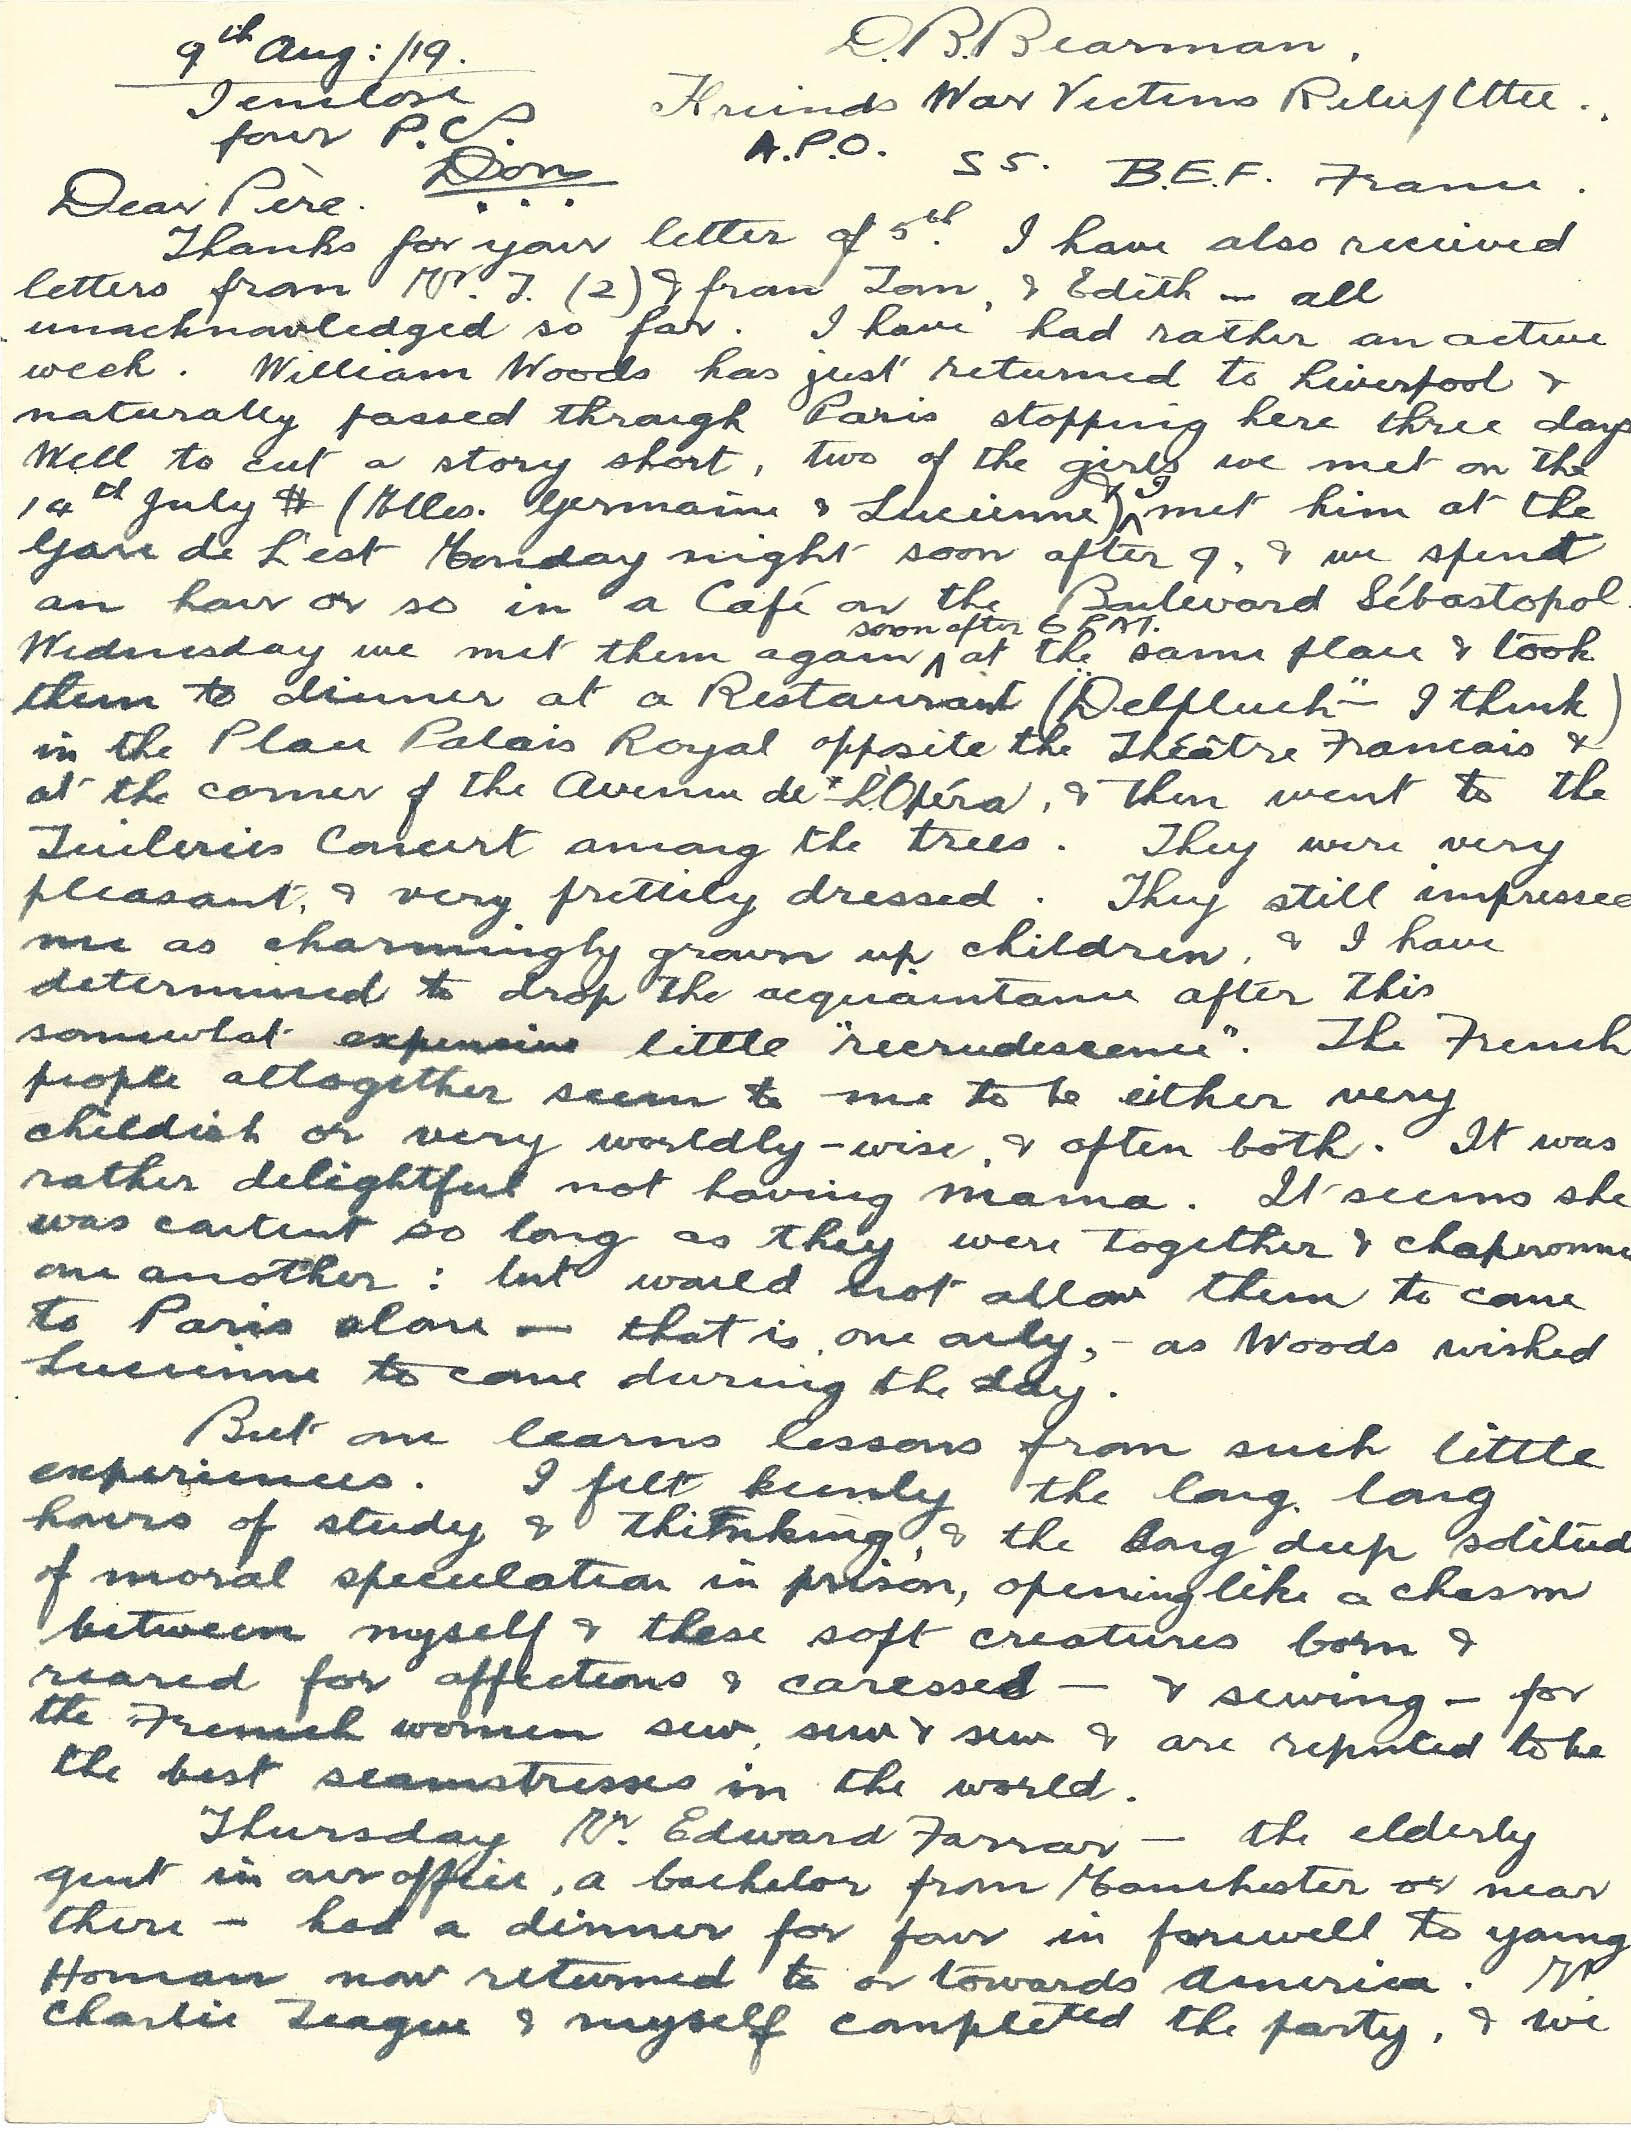 9th Aug: /19.
D.B. Bearman,
I enclose
four P.Cs.
Don
Friends War Victims Relief Cttee.,
A.P.O. S 5. B.E.F. France.
Dear Père.
Thanks for your letter of 5th. I have also received
letters from Mr. T. (2) & from Tom, & Edith — all
unacknowledged so far. I have had rather an active
week. William Woods has just returned to Liverpool &
naturally passed through Paris stopping here three days
Well to cut a story short, two of the girls we met on the
14th July (Mlles. Germaine & Lucienne) & I met him at the
Gare de L'est Monday night soon after 9, & we spent
an hour or so in a Café on the Boulevard Sébastopol.
Wednesday we met them again soon after 6 P.M. at the same place & took
them to dinner at a Restaurant ("Delpluch" — I think)
in the Place Palais Royal opposite the Théâtre Francais &
at the corner of the Avenue de L'Opéra, & then went to the
Tuileries Concert among the trees. They were very
pleasant, & very prettily dressed. They still impressed
me as charmingly grown up children, & I have
determined to drop the acquaintance after this
somewhat expensive little "recrudescence". The French
people altogether seem to me to be either very
childish or very worldly-wise, & often both. It was
rather delightful not having mama. It seems she
was content so long as they were together & chaperonne
one another: but would not allow them to come
to Paris alone — that is, one only, — as Woods wished
Lucienne to come during the day.
But one learns lessons from such little
experiences. I felt keenly the long, long
hours of study & thinking, & the long deep solitud
of moral speculation in prison, opening like a chasm
between myself & these soft creatures born &
reared for affections & caresses — & sewing — for
the French women sew, sew & sew & are reputed to be
the best seamstresses in the world.
Thursday Mr. Edward Farrar — the elderly
gent in our office, a bachelor from Manchester or near
there — had a dinner for four in farewell to young
Homan now returned to or towards America. Mr
Charlie Teague & myself completed the party, & we